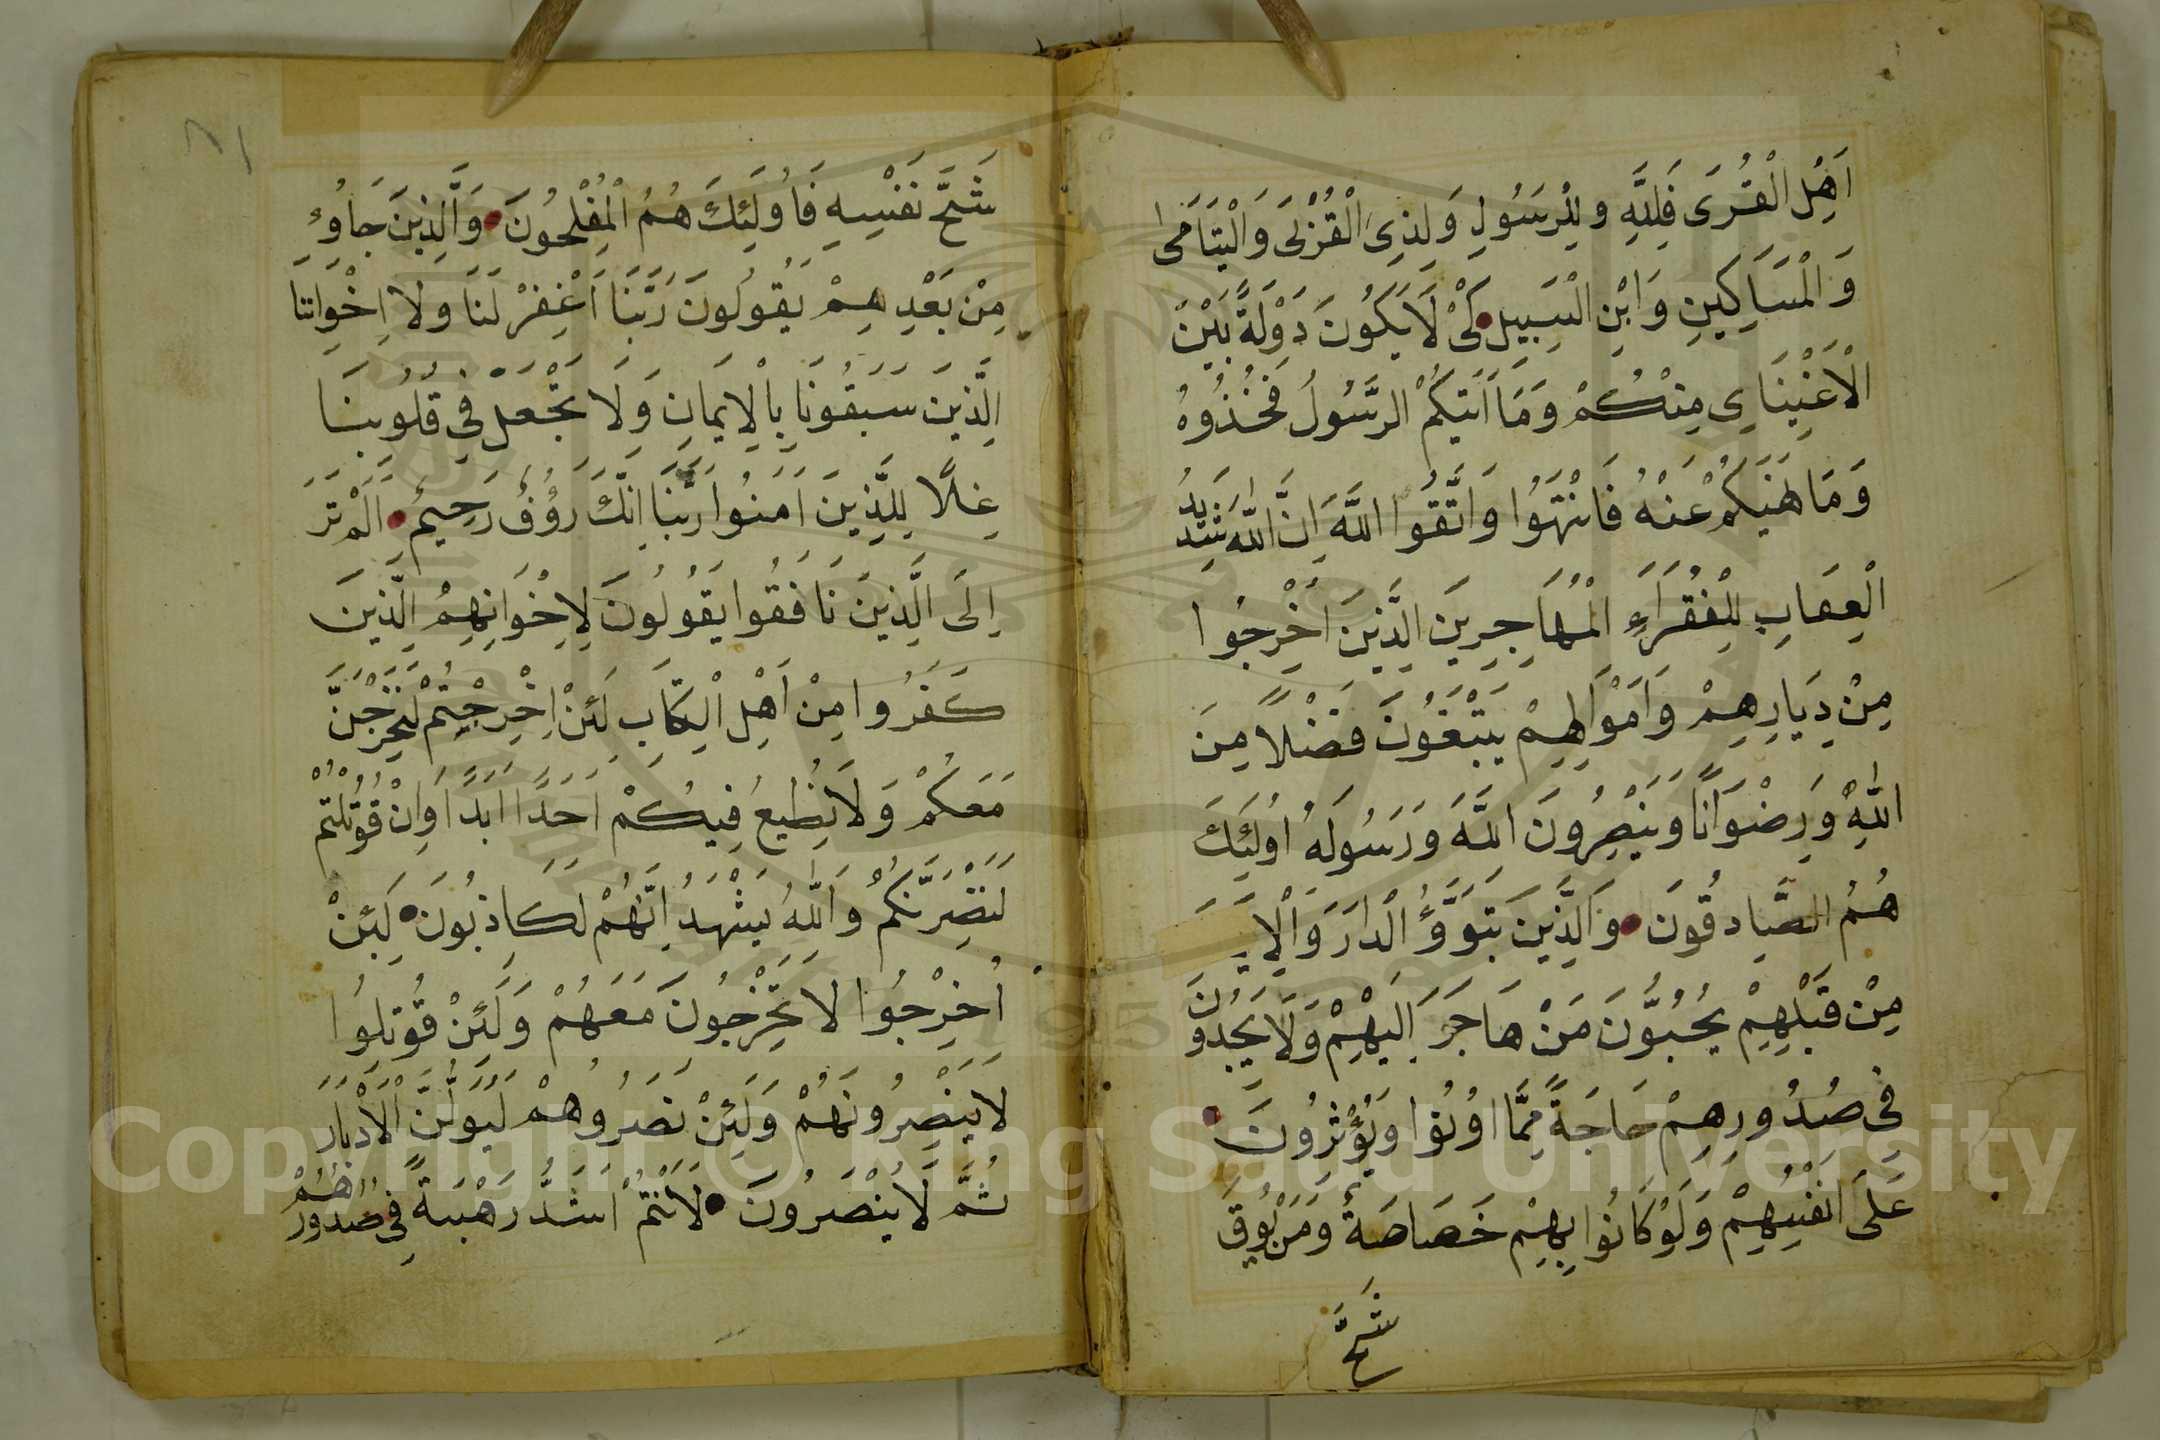 اَهْلِ الْقُرَى فَلِلَّهِ وَلِلرَسُولِ وَلِذِى الْقُرْبَى وَالْيَتَامَى
وَالْمَسَاكِينِ وَابْنِ السَبِيلِ كَىْ لَا يَكُونَ دَوْلَةً بَيْنَ
الْاَغْنِيَاىِ مِنْكُمْ وَمَا اَتَيكُمُ الرَّسُولُ فَخُذُوهُ
وَمَا نَهَيكُمْ عَنْهُ فَانْتَهَوُا وَاتَّقُوا اللَّهَ اِنَّ اللهَ شَدِيدُ
الْعِقَابِ لِلْفُقَرَاءِ الْمُهَاجِرِينَ الَّذِينَ اُخْرِجُوا
مِنْ دِيَارِهِمْ وَاَمْوَالِهِمْ يَبْتَغُونَ فَضْلًا مِنَ
اللهِ وَرِضْوَانًا وَيَنْصِرُونَ اللَّهَ وَرَسُولَهُ اُولَئِكَ
هُمُ الصَّادِقُونَ وَالَّذِينَ تَبَوَّؤُ الْدَارَ وَالْاِيـ
مِنْ قَبْلِهِمْ يُحِبُّونَ مَنْ هَاجَرَ اِلَيْهِمْ وَلَا يَجِدُونَ
فِى صُدُورِهِمْ حَاجَةً مِمَّا اُوتُوا وَيُؤْثِرُونَ
عَلَى اَنْفُسِهِمْ وَلَوْ كَانُوا بِهِمْ خَصَاصَةٌ وَمَنْ يُوقَ
شُحَّ
٨١
شُحَّ نَفْسِهِ فَاُولَئِكَ هُمُ الْمُفْلِحُونَ وَالَّذِينَ جَاوُءِ
مِنْ بَعْدِهِمْ يَقُولُونَ رَبَّنَا اَغْفِرْ لَنَا وَلِاِخْوَانِنَا
الَّذِينَ سَبَقُونَا بِالْاِيمَانِ وَلَا تَجْعَلْ فِى قُلُوبِنَا
غِلًّا لِلَّذِينَ اَمَنُوا رَبَّنَا اِنَّكَ رَؤُفٌ رَحِيمٌ اَلَمْ تَرَ
اِلَى الَّذِينَ نَافَقُوا يَقُولُونَ لِاِخْوَانِهِمُ الَّذِينَ
كَفَرُوا مِنْ اَهْلِ الْكِتَابِ لَئِنْ اُخْرِجْتُمْ لَنَخْرُجَنَّ
مَعَكُمْ وَلَا نُطِيعُ فِيكُمْ اَحَدًا اَبَدًا وَاِنْ قُوتِلْتُمْ
لَنَنْصُرَنَّكُمْ وَاللهُ يَشْهَدُ اِنَّهُمْ لَكَاذِبُونَ لَئِنْ
اُخْرِجُوا لَا يَخْرُجُونَ مَعَهُمْ وَلَئِنْ قُوتِلُوا
لَا يَنْصُرُونَهُمْ وَلَئِنْ نَصَرُوهُمْ لَيُوَلُّنَّ الْاَدْبَارَ
ثُمَّ لَا يُنْصَرُونَ لَاَنْتُمْ اَشَدُّ رَهْبَةً فِى صُدُورِهِمْ
Copyright © King Saud University